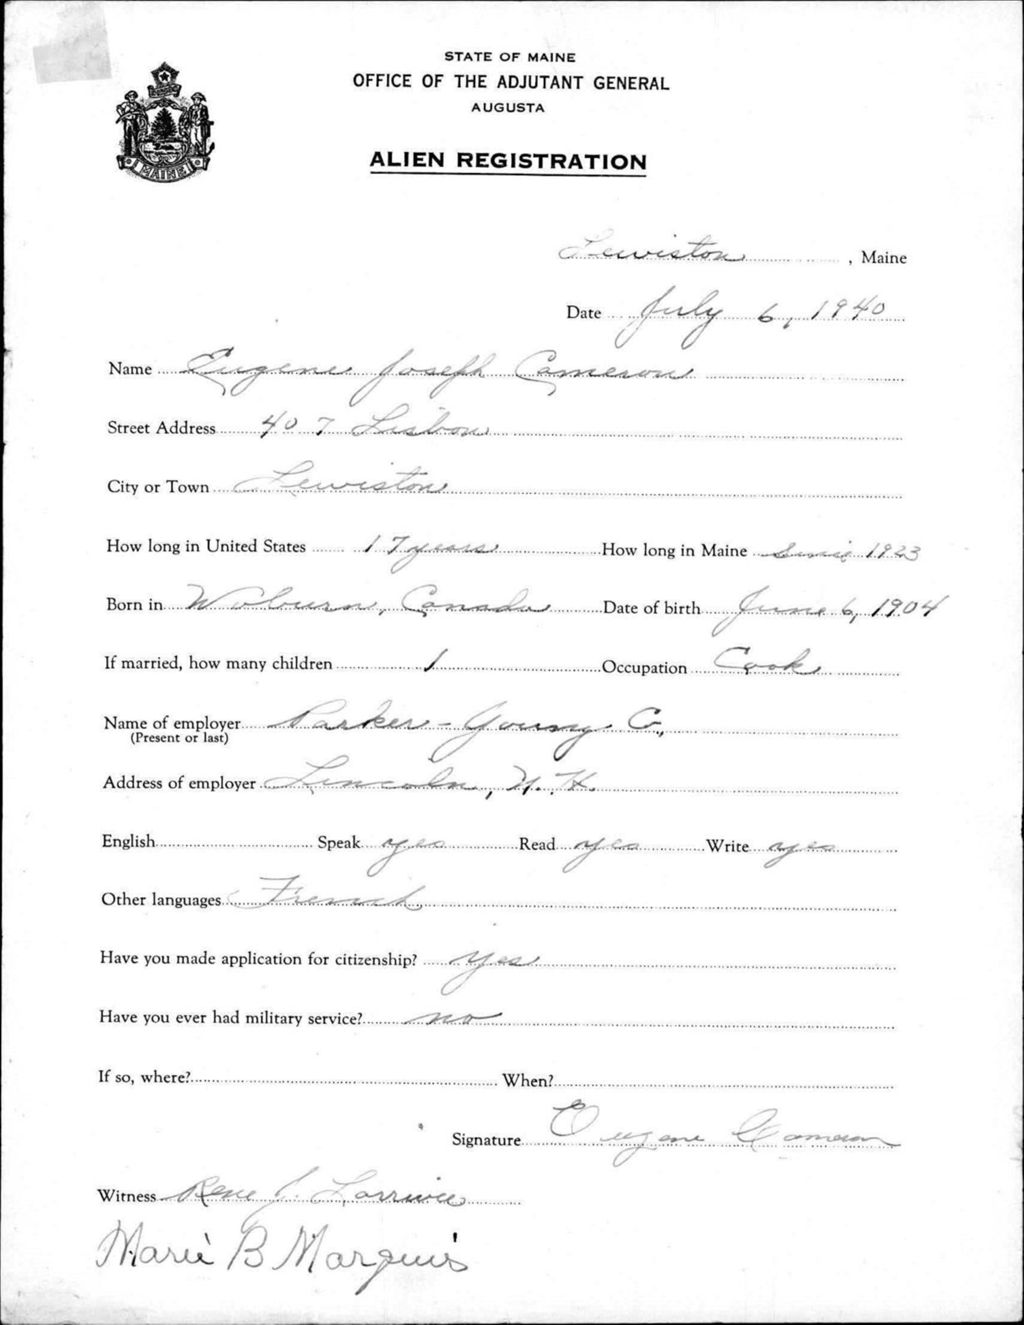 STATE OF MAINE
OFFICE OF THE ADJUTANT GENERAL
AUGUSTA
ALIEN REGISTRATION
MAINE
Lewiston, Maine
Date July 6, 1940
Name Eugene Joseph Cameron
Street Address 407 Lisbon
City or Town Lewiston
How long in United States 17 years How long in Maine Since 1923
Born in Woburn, Canada Date of birth June 6, 1904
If married, how many children 1 Occupation Cook
Name of employer Parker-Young Co.,
(Present or last)
Address of employer Lincoln, N.H.
English Speak yes Read yes Write yes
Other languages French
Have you made application for citizenship? yes
Have you ever had military service? no
If so, where? When?
Signature Eugene Cameron
Witness Rene J. Larrivee
Marie B Marquis